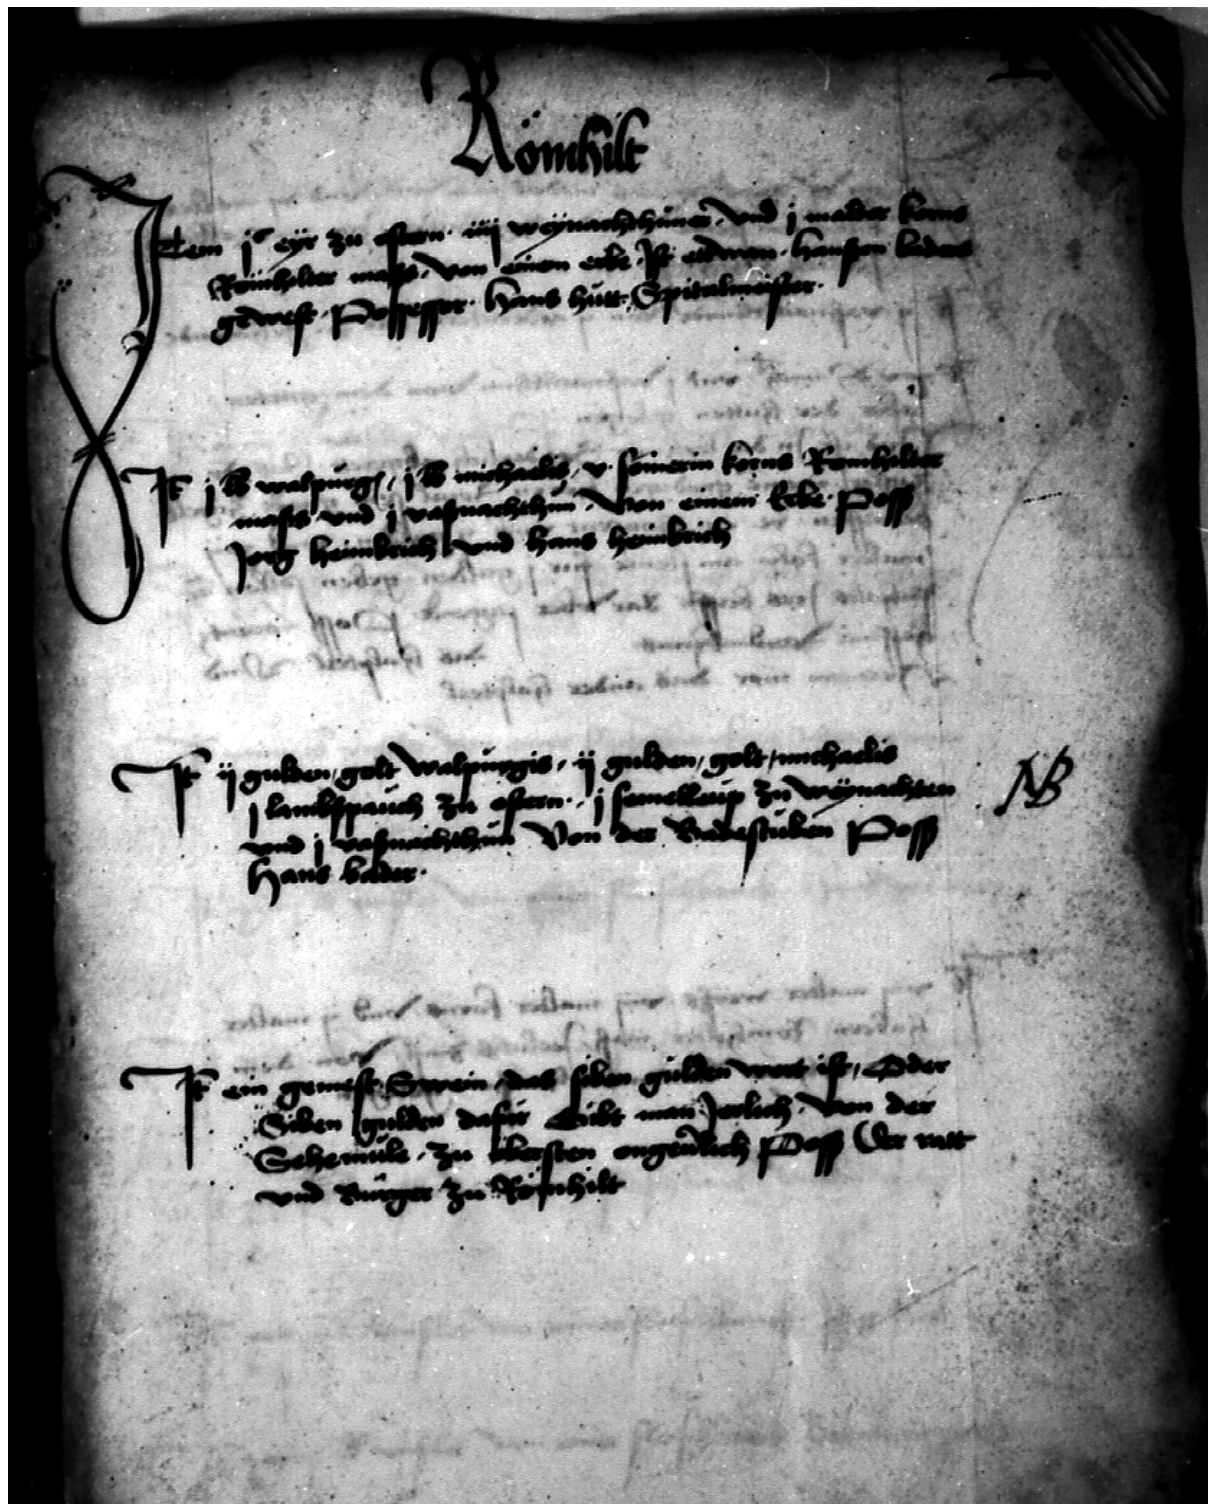 Römhilt
Item jc eyr zu ostern · iiij weynachthuner · vnd j malder korns
Römhilter mass · von einem erbe · Ist etwan · hansen baders
gewest · Possessor · Hans hutt · Spitalmeister ·
It j lb walpurg j lb michaelis v somerin korns Römhilter
mass vnd j vaßnachthun · Von einem Erbe · Poss
Jorg heimbrich vnd hans heimbrich
It ij gulden / golt walpurgis · ij gulden / golt / michaelis
j lambsspauch zu ostern · j semelleup zu weynachten
vnd j vaßnachthun Von der Badestuben Poss
Hans bader ·
NB
It ein gemest Swein · das siben gulden wert ist / Oder
Siben gulden dafur Gibt man Jerlich · von der
Sehemule · zu obersten ongeuerlich Poss Der ratt
vnd Burger zu Römhilt